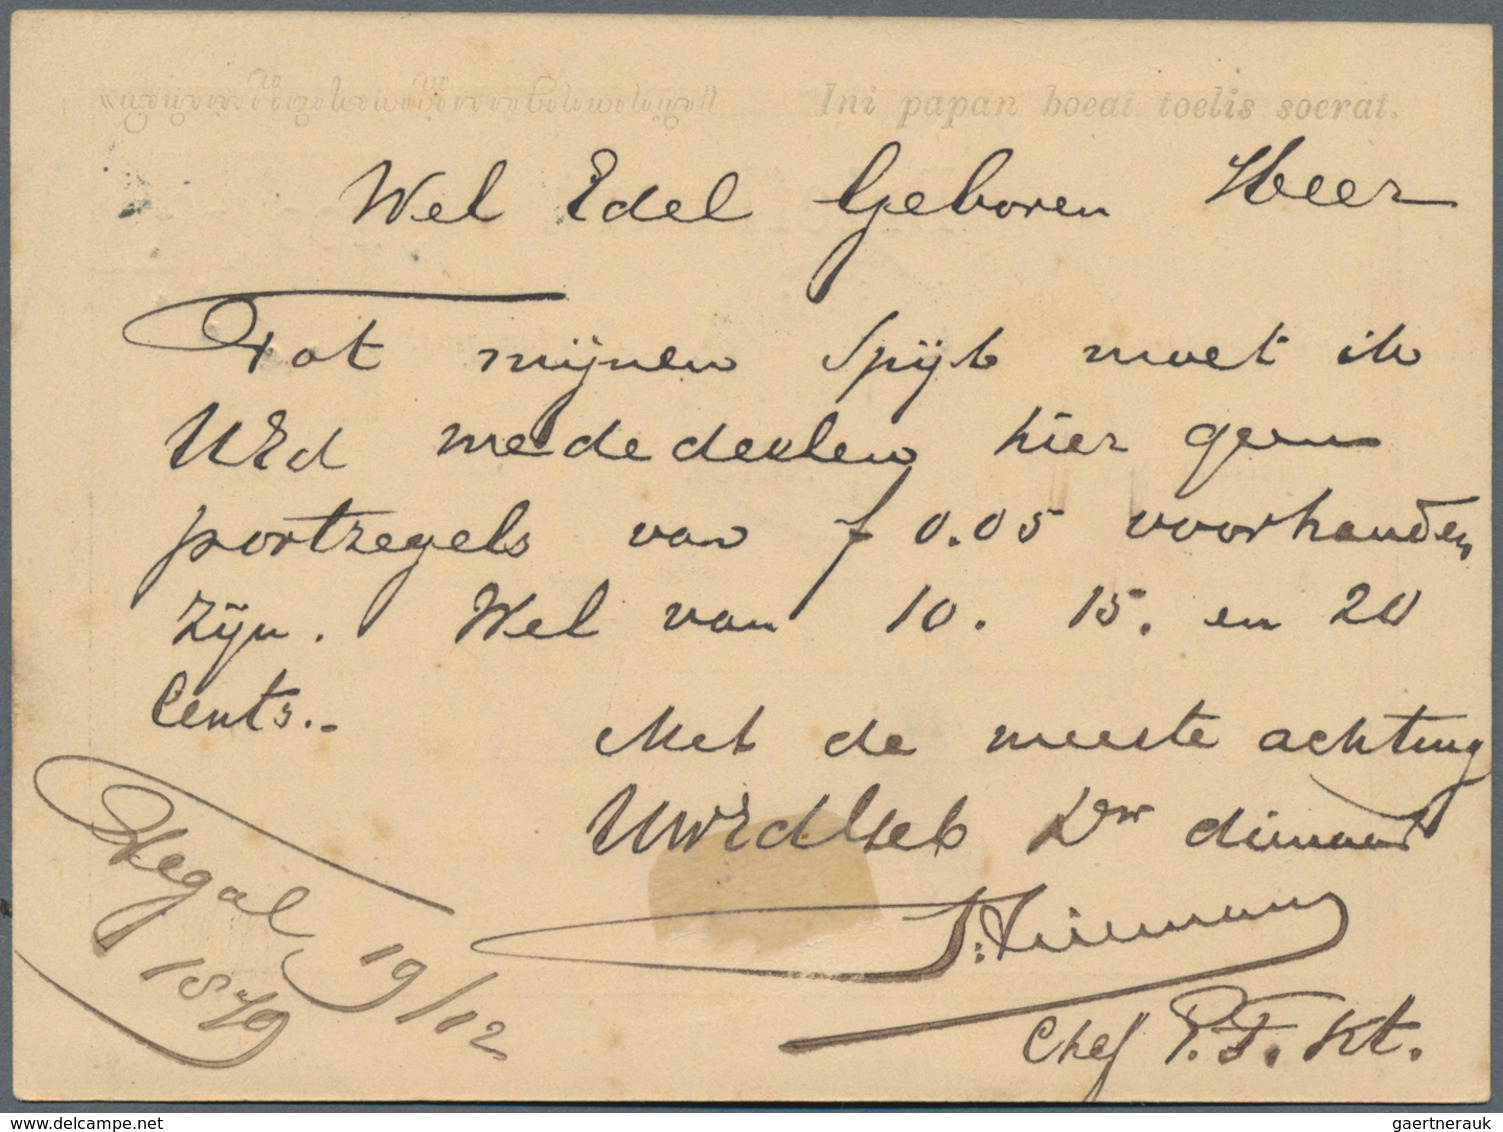 Ini papan boeat toelis soerat.
Wel Edel Geboren Heer
Tot mijnen spijt moet ik
UEd mededeelen hier geen
portzegels van f 0.05 voorhanden
zijn. Wel van 10. 15. en 20
Cents.-
Met de meeste achting
UWEdlGeb Dw dienaar
Tegal 19/12
1879
Chef P. T. Kt.
delcampe.net
gaertnerauk